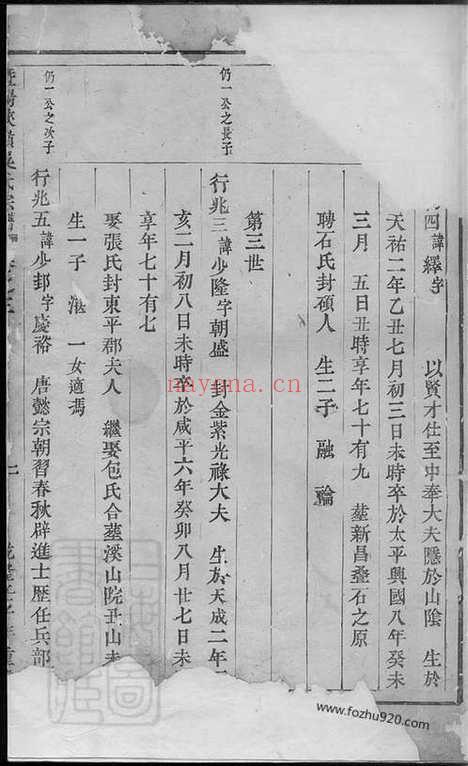 四諱繹字 以賢才仕至中奉大夫隱於山陰 生於
天祐二年乙丑七月初三日未時卒於太平興國八年癸未
三月 五日丑時享年七十有九 塟新昌疊石之原
聘石氏封碩人 生二子 融 論
第三世
仍一公之長子
行兆三諱少隆字朝盛 封金紫光祿大夫 生於天成二年
亥二月初八日未時卒於咸平六年癸卯八月廿七日未
享年七十有七
娶張氏封東平郡夫人 繼娶包氏合塟溪山院丑山未
生一子 一女適馮
仍一公之次子
行兆五諱少邽字慶裕 唐懿宗朝習春秋辟進士歷任兵部
nayona.cn
www.fozhu920.com